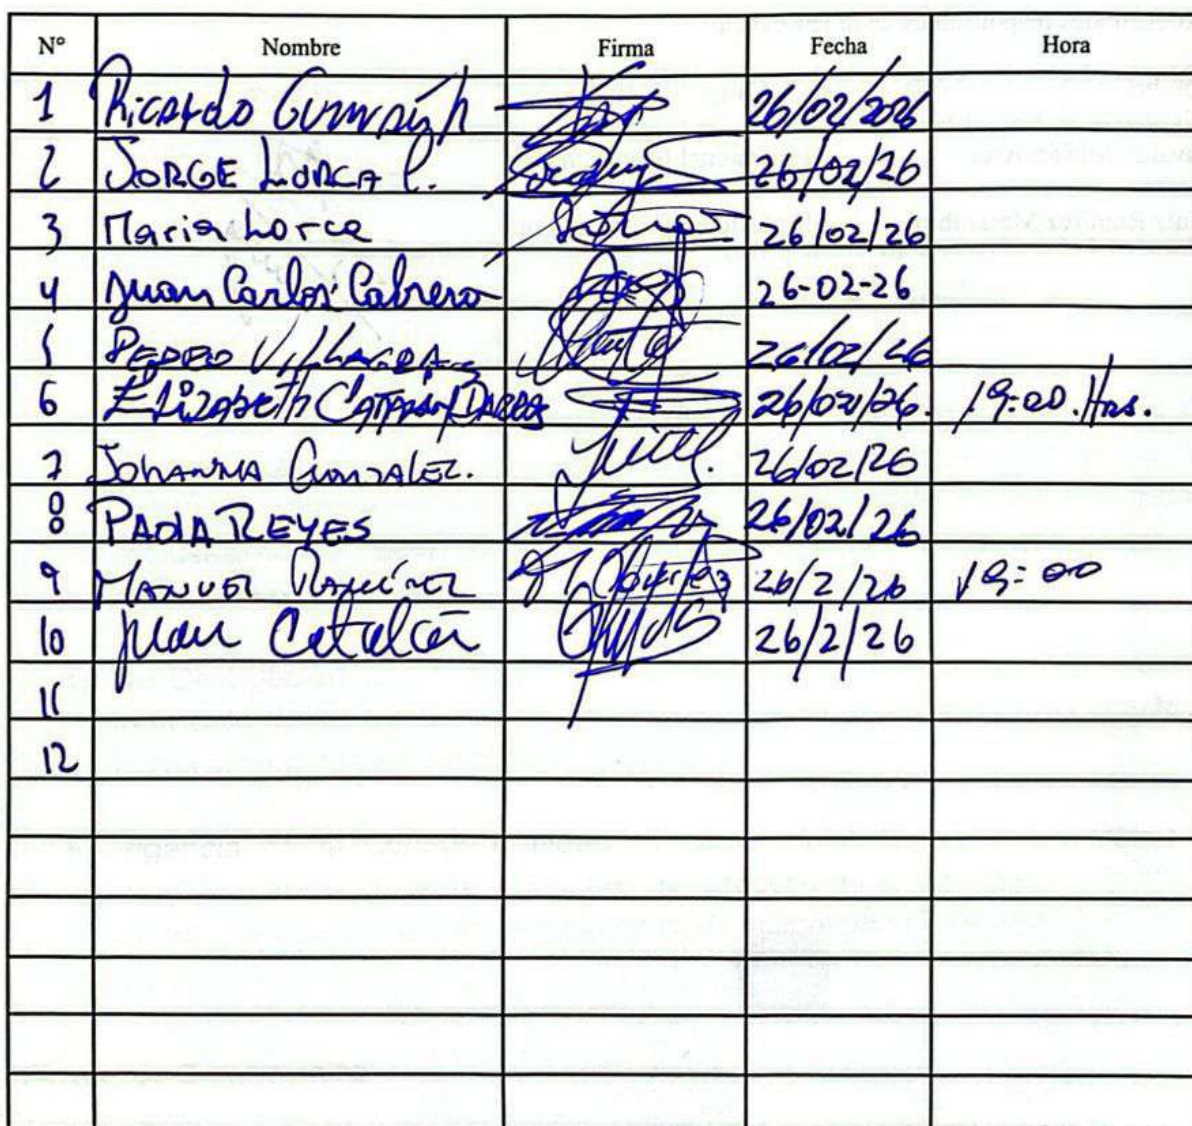 N° Nombre Firma Fecha Hora
1 Ricardo 26/02/2026
2 JORGE LORCA 26/02/26
3 Maria Lorca 26/02/26
4 Juan Carlos Cabrera 26-02-26
5 PEDRO VILLAGRA 26/02/26
6 ELIZABETH 26/02/26. 19:00.Hrs.
7 JOHANNA GONZALEZ. 26/02/26
8 PAOLA REYES 26/02/26
9 MANUEL RAMÍREZ 26/2/26 19:00
10 Juan Catalán 26/2/26
11
12